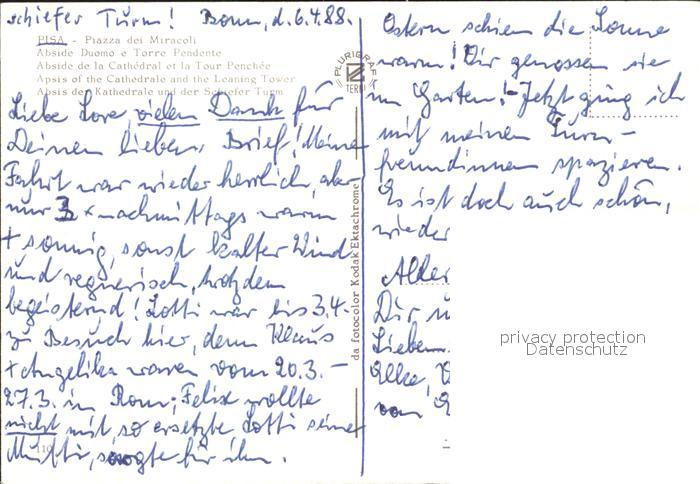 schiefer Turm! Bonn, d. 6.4.88.
PISA - Piazza dei Miracoli
Abside Duomo e Torre Pendente
Abside de la Cathédral et la Tour Penchée
Apsis of the Cathedrale and the Leaning Tower
Absis der Kathedrale und der Schiefer Turm
Liebe Lore, vielen Dank für
Deinen lieben Brief! Meine
Fahrt war wieder herrlich, aber
nur 3 x nachmittags warm
+ sonnig, sonst kalter Wind
und regnerisch, trotzdem
begeisternd! Lotti war bis 3.4.
zu Besuch hier, denn Klaus
+ Angelika waren vom 20.3. -
27.3. in Rom; Felix wollte
nicht mit, so ersetzte Lotti seine
Mutti, sorgte für ihn.
110
PLURIGRAF
TERNI
da fotocolor Kodak Ektachrome
Ostern schien die Sonne
warm! Wir genossen sie
im Garten! - Jetzt ging ich
mit meinen Turn-
freundinnen spazieren.
Es ist doch auch schön,
wieder
Alles
Dir u
Lieben
von
privacy protection
Datenschutz